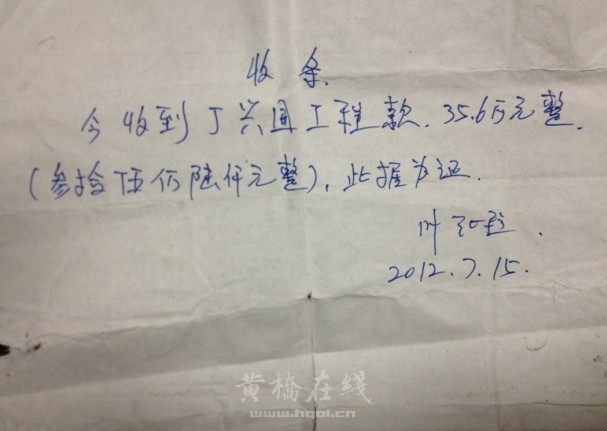 收条.
今收到丁兴国工程款.35.6万元整.
(叁拾伍仟陆仟元整),此据为证.
叶
2012.7.15.
黄橋在綫
www.hqol.cn